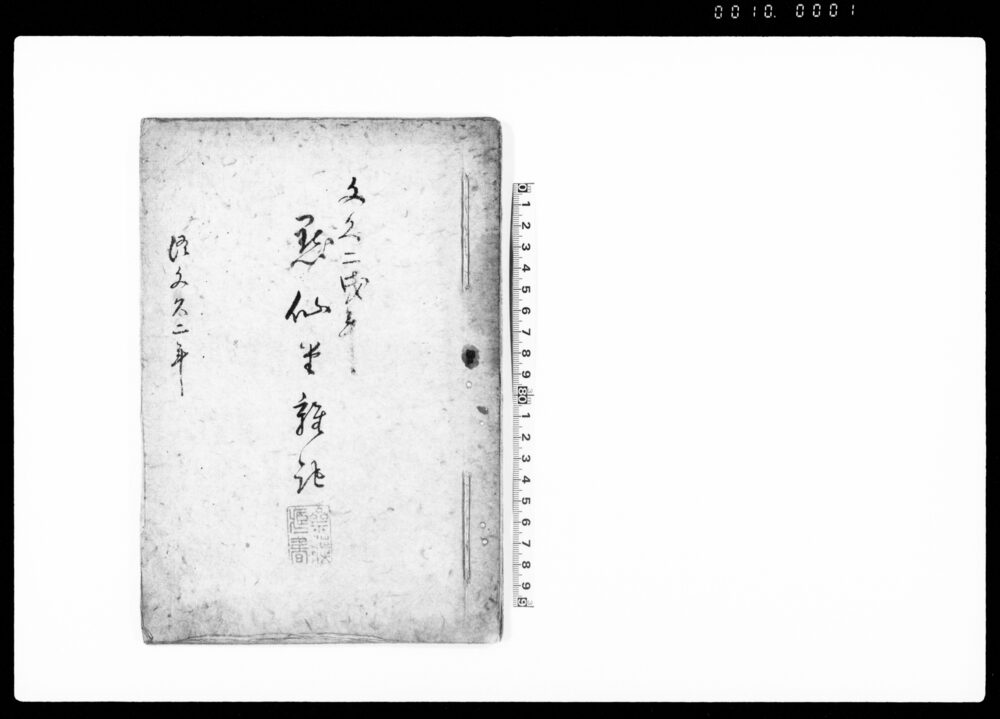 0010. 0001
文久二戌年
仙堂雑記
文久二年
0 1 2 3 4 5 6 7 8 9 1 2 3 4 5 6 7 8 9